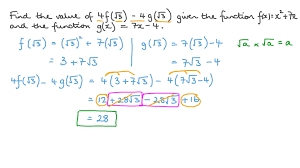 Find the value of 4f(√3) − 4g(√3) given the function f(x) = x² + 7x
and the function g(x) = 7x − 4.
f(√3) = (√3)² + 7(√3) g(√3) = 7(√3) − 4 √a × √a = a
= 3 + 7√3 = 7√3 − 4
4f(√3) − 4g(√3) = 4(3 + 7√3) − 4(7√3 − 4)
= 12 + 28√3 − 28√3 + 16
= 28